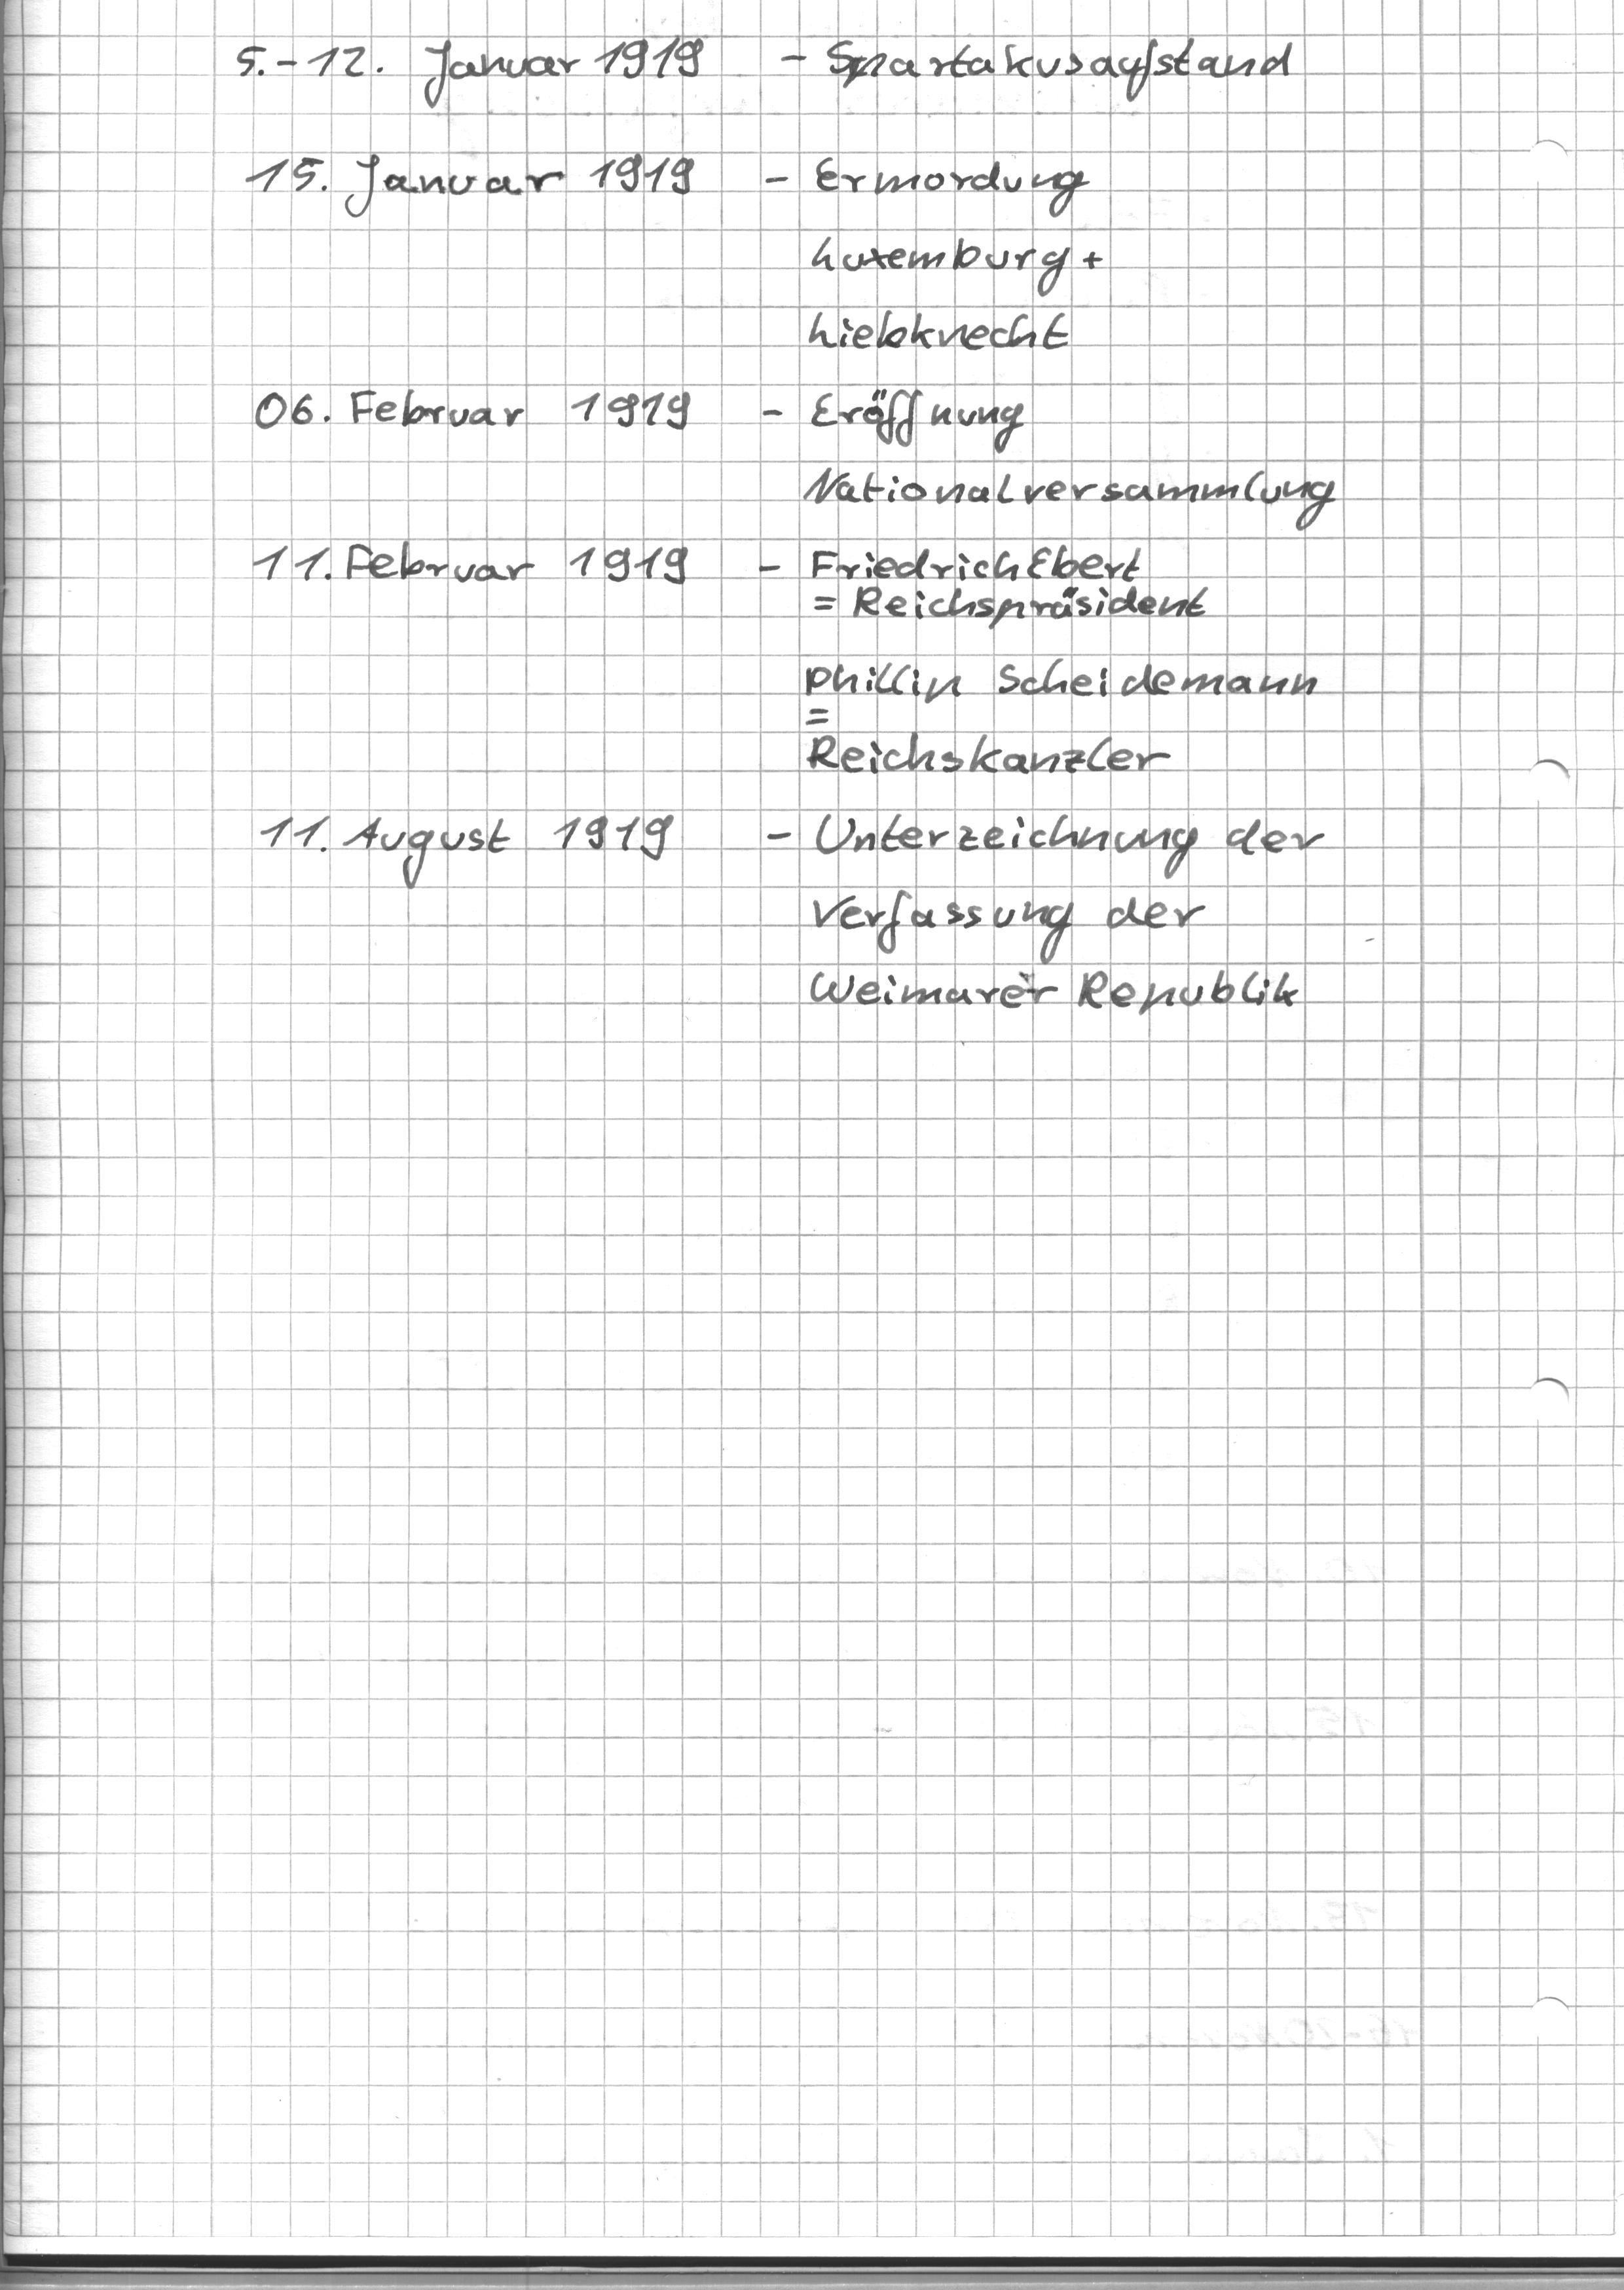 5.-12. Januar 1919 - Spartakusaufstand
15. Januar 1919 - Ermordung
Luxemburg +
Liebknecht
06. Februar 1919 - Eröffnung
Nationalversammlung
11. Februar 1919 - Friedrich Ebert
= Reichspräsident
Phillip Scheidemann
=
Reichskanzler
11. August 1919 - Unterzeichnung der
Verfassung der
Weimarer Republik